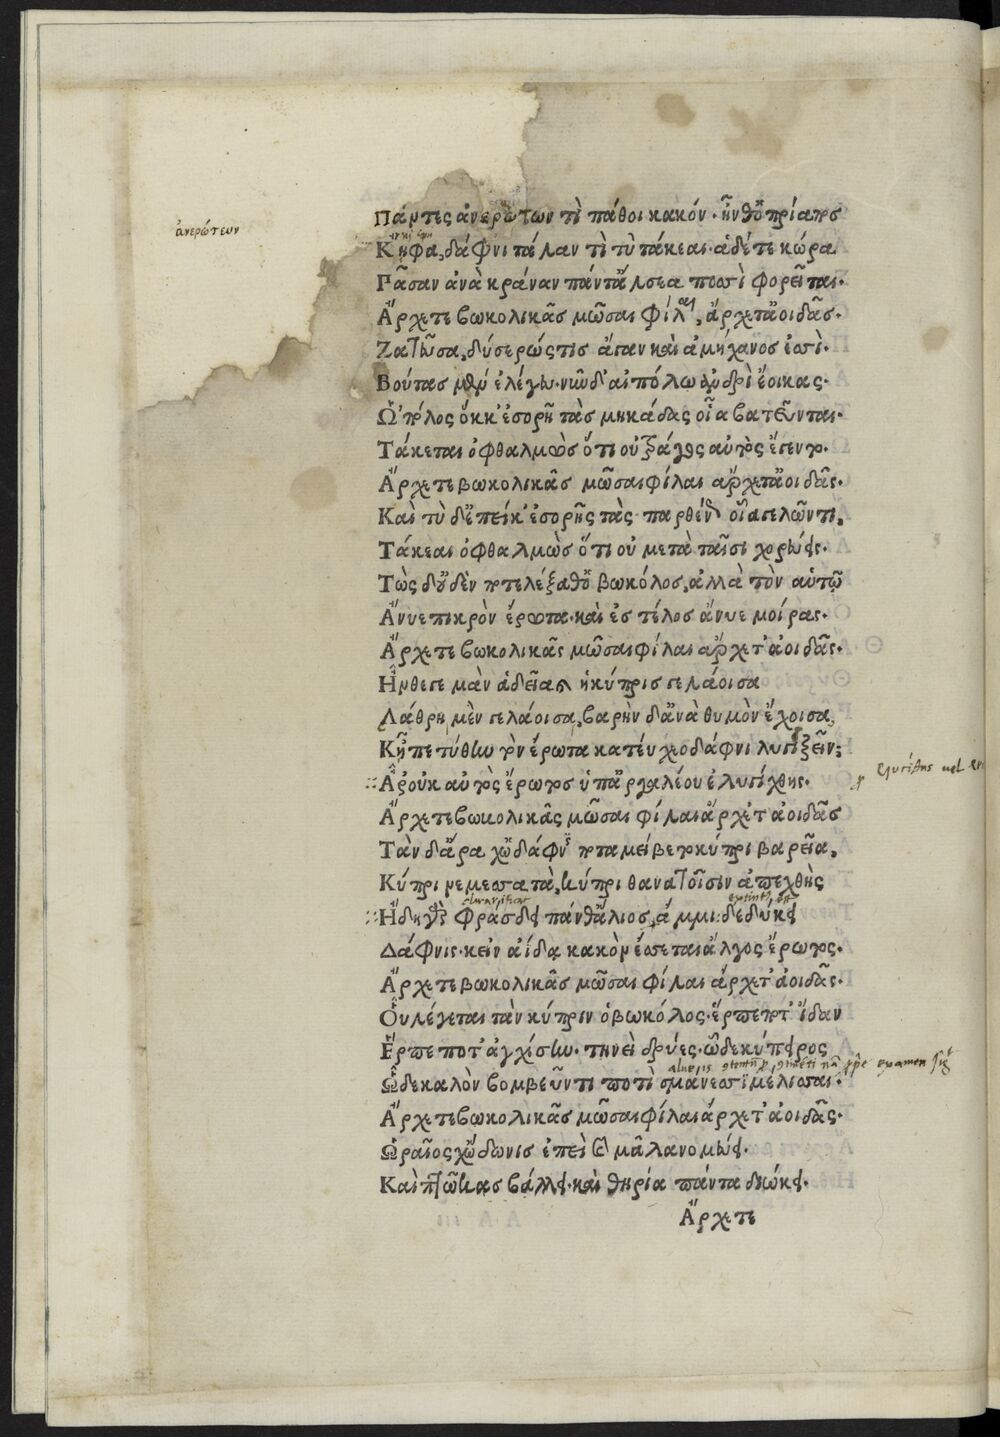 ἀνερώτευν
Πάντες ἀνερώτων τὶ πάθοι κακόν· ἦνθ' ὁ πρίαπος
Κἤφα, δάφνι τάλαν τὶ τὺ τάκεαι· ἁ δέ τε κώρα
Πᾶσαν ἀνὰ κράναν πάντ' ἄλσεα ποσσὶ φορεῖται·
Ἄρχετε βωκολικᾶς μῶσαι φίλαι, ἄρχετ' ἀοιδᾶς·
Ζατεῦσα, δύσερώς τις ἄγαν καὶ ἀμήχανος ἐσσί·
Βούτας μὲν ἐλέγευ· νῦν δ' αἰπόλῳ ἀνδρὶ ἔοικας·
Ὡ' πόλος ὅκκ' ἐσορῇ τὰς μηκάδας οἷα βατεῦνται·
Τάκεται ὀφθαλμὼς ὅτι οὐ τράγος αὐτὸς ἔγεντο·
Ἄρχετε βωκολικᾶς μῶσαι φίλαι ἄρχετ' ἀοιδᾶς·
Καὶ τὺ δ' ἔπείκ' ἐσορῇς τὰς παρθένους οἷα γελῶντι,
Τάκεαι ὀφθαλμὼς ὅτι οὐ μετὰ ταῖσι χορεύεις·
Τὼς δ' οὐδὲν ποτελέξαθ' ὁ βωκόλος, ἀλλὰ τὸν αὑτῶ
Ἄνυε πικρὸν ἔρωτα· καὶ ἐς τέλος ἄνυε μοίρας·
Ἄρχετε βωκολικᾶς μῶσαι φίλαι ἄρχετ' ἀοιδᾶς·
Ἦνθέ γε μὰν ἁδεῖα καὶ ἡ κύπρις γελάοισα
Λάθρη μὲν γελάοισα, βαρὴν δ' ἀνὰ θυμὸν ἔχοισα,
Κἦπε τύ θην τὸν ἔρωτα κατεύχεο δάφνι λυγιξεῖν;
Ἆρ' οὐκ αὐτὸς ἔρωτος ὑπ' ἀργαλέου ἐλυγίχθης·
ἐλυγίσθης uel
Ἄρχετε βωκολικᾶς μῶσαι φίλαι ἄρχετ' ἀοιδᾶς
Τὰν δ' ἄρα χὡ δάφνις ποταμείβετο κύπρι βαρεῖα,
Κύπρι νεμεσσατὰ, κύπρι θνατοῖσιν ἀπεχθὴς
Ἤδη γὰρ φράσδει πάνθ' ἅλιος, ἄμμι δεδύκει
Δάφνις· κεἰν ἀίδα κακὸν ἔσσεται ἄλγος ἔρωτος·
Ἄρχετε βωκολικᾶς μῶσαι φίλαι ἄρχετ' ἀοιδᾶς·
Οὗ λέγεται τὰν κύπριν ὁ βωκόλος· ἕρπε ποτ' ἴδαν
Ἕρπε ποτ' ἀγχίσην· τηνεὶ δρύες· ὧδε κύπειρος
examen
Ὧδε καλὸν βομβεῦντι ποτὶ σμάνεσσι μέλισσαι·
Ἄρχετε βωκολικᾶς μῶσαι φίλαι ἄρχετ' ἀοιδᾶς·
Ὡραῖος χὥδωνις ἐπεὶ καὶ μᾶλα νομεύει·
Καὶ πτῶκας βάλλει· καὶ θηρία πάντα διώκει·
Ἄρχετε